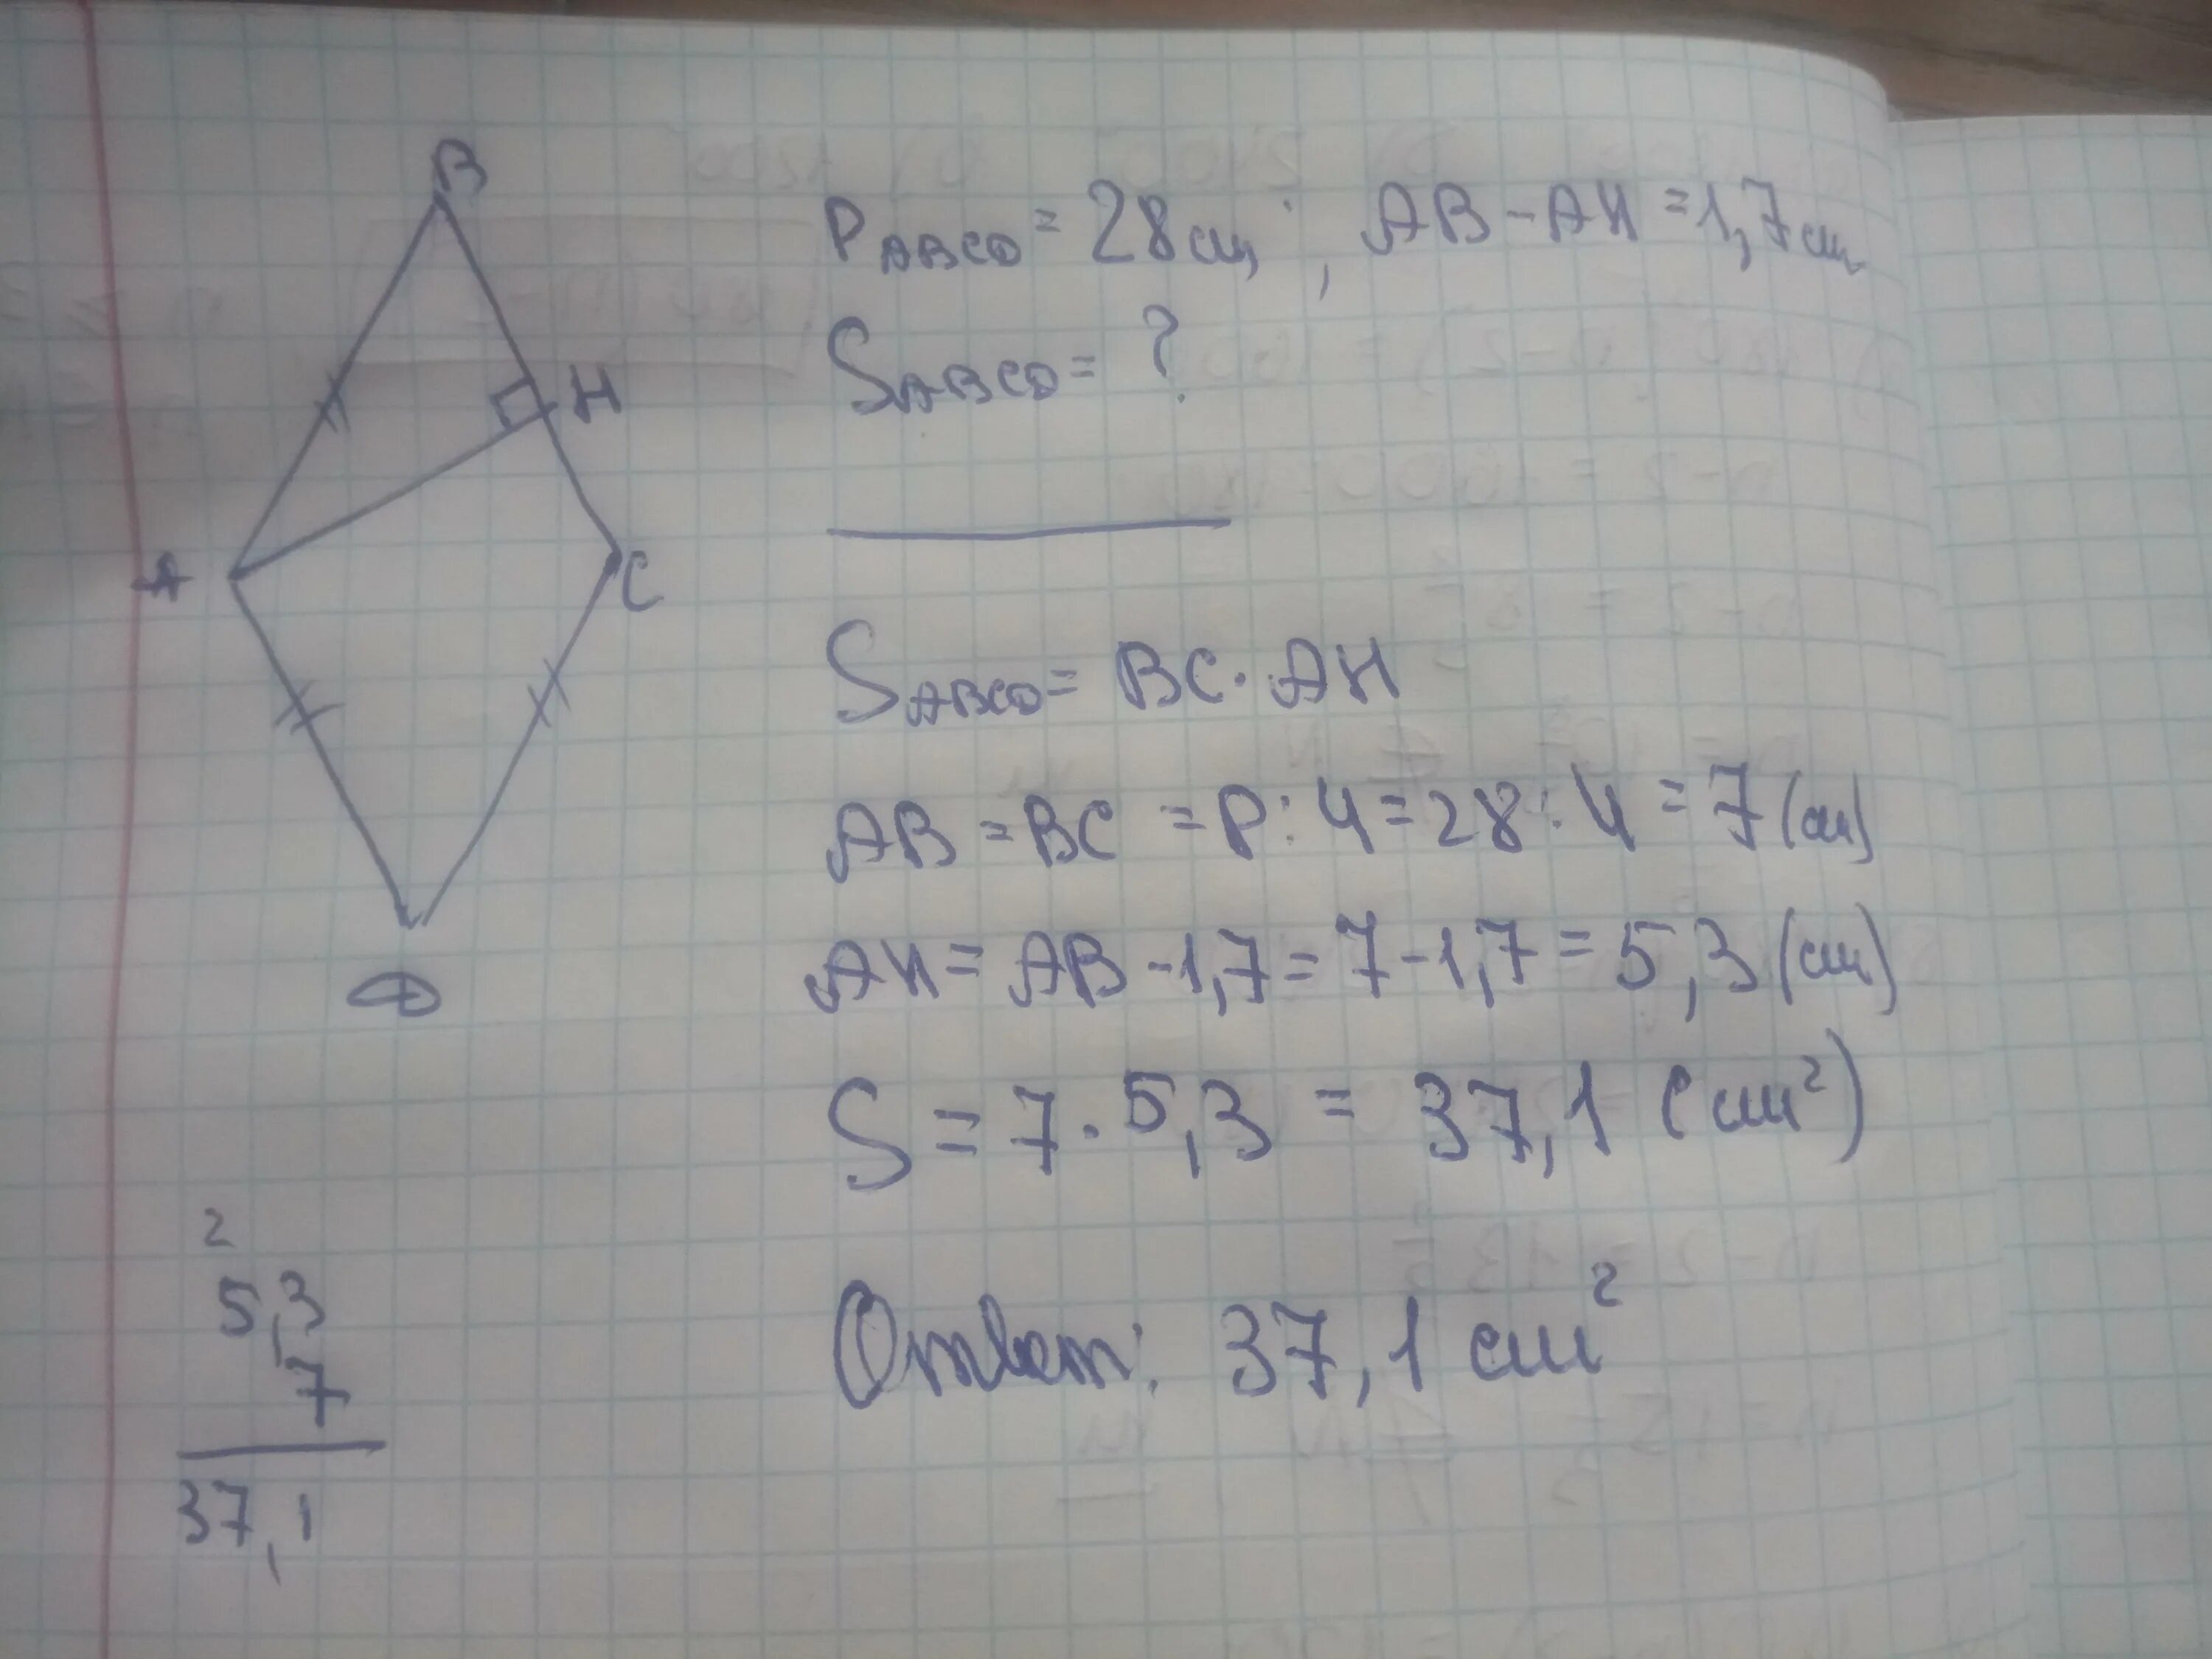 B
H
A
C
D
P ABCD = 28 см, AB - AH = 1,7 см
S ABCD = ?
S ABCD = BC · AH
AB = BC = P : 4 = 28 : 4 = 7 (см)
AH = AB - 1,7 = 7 - 1,7 = 5,3 (см)
S = 7 · 5,3 = 37,1 (см²)
2
5,3
7
37,1
Ответ: 37,1 см²